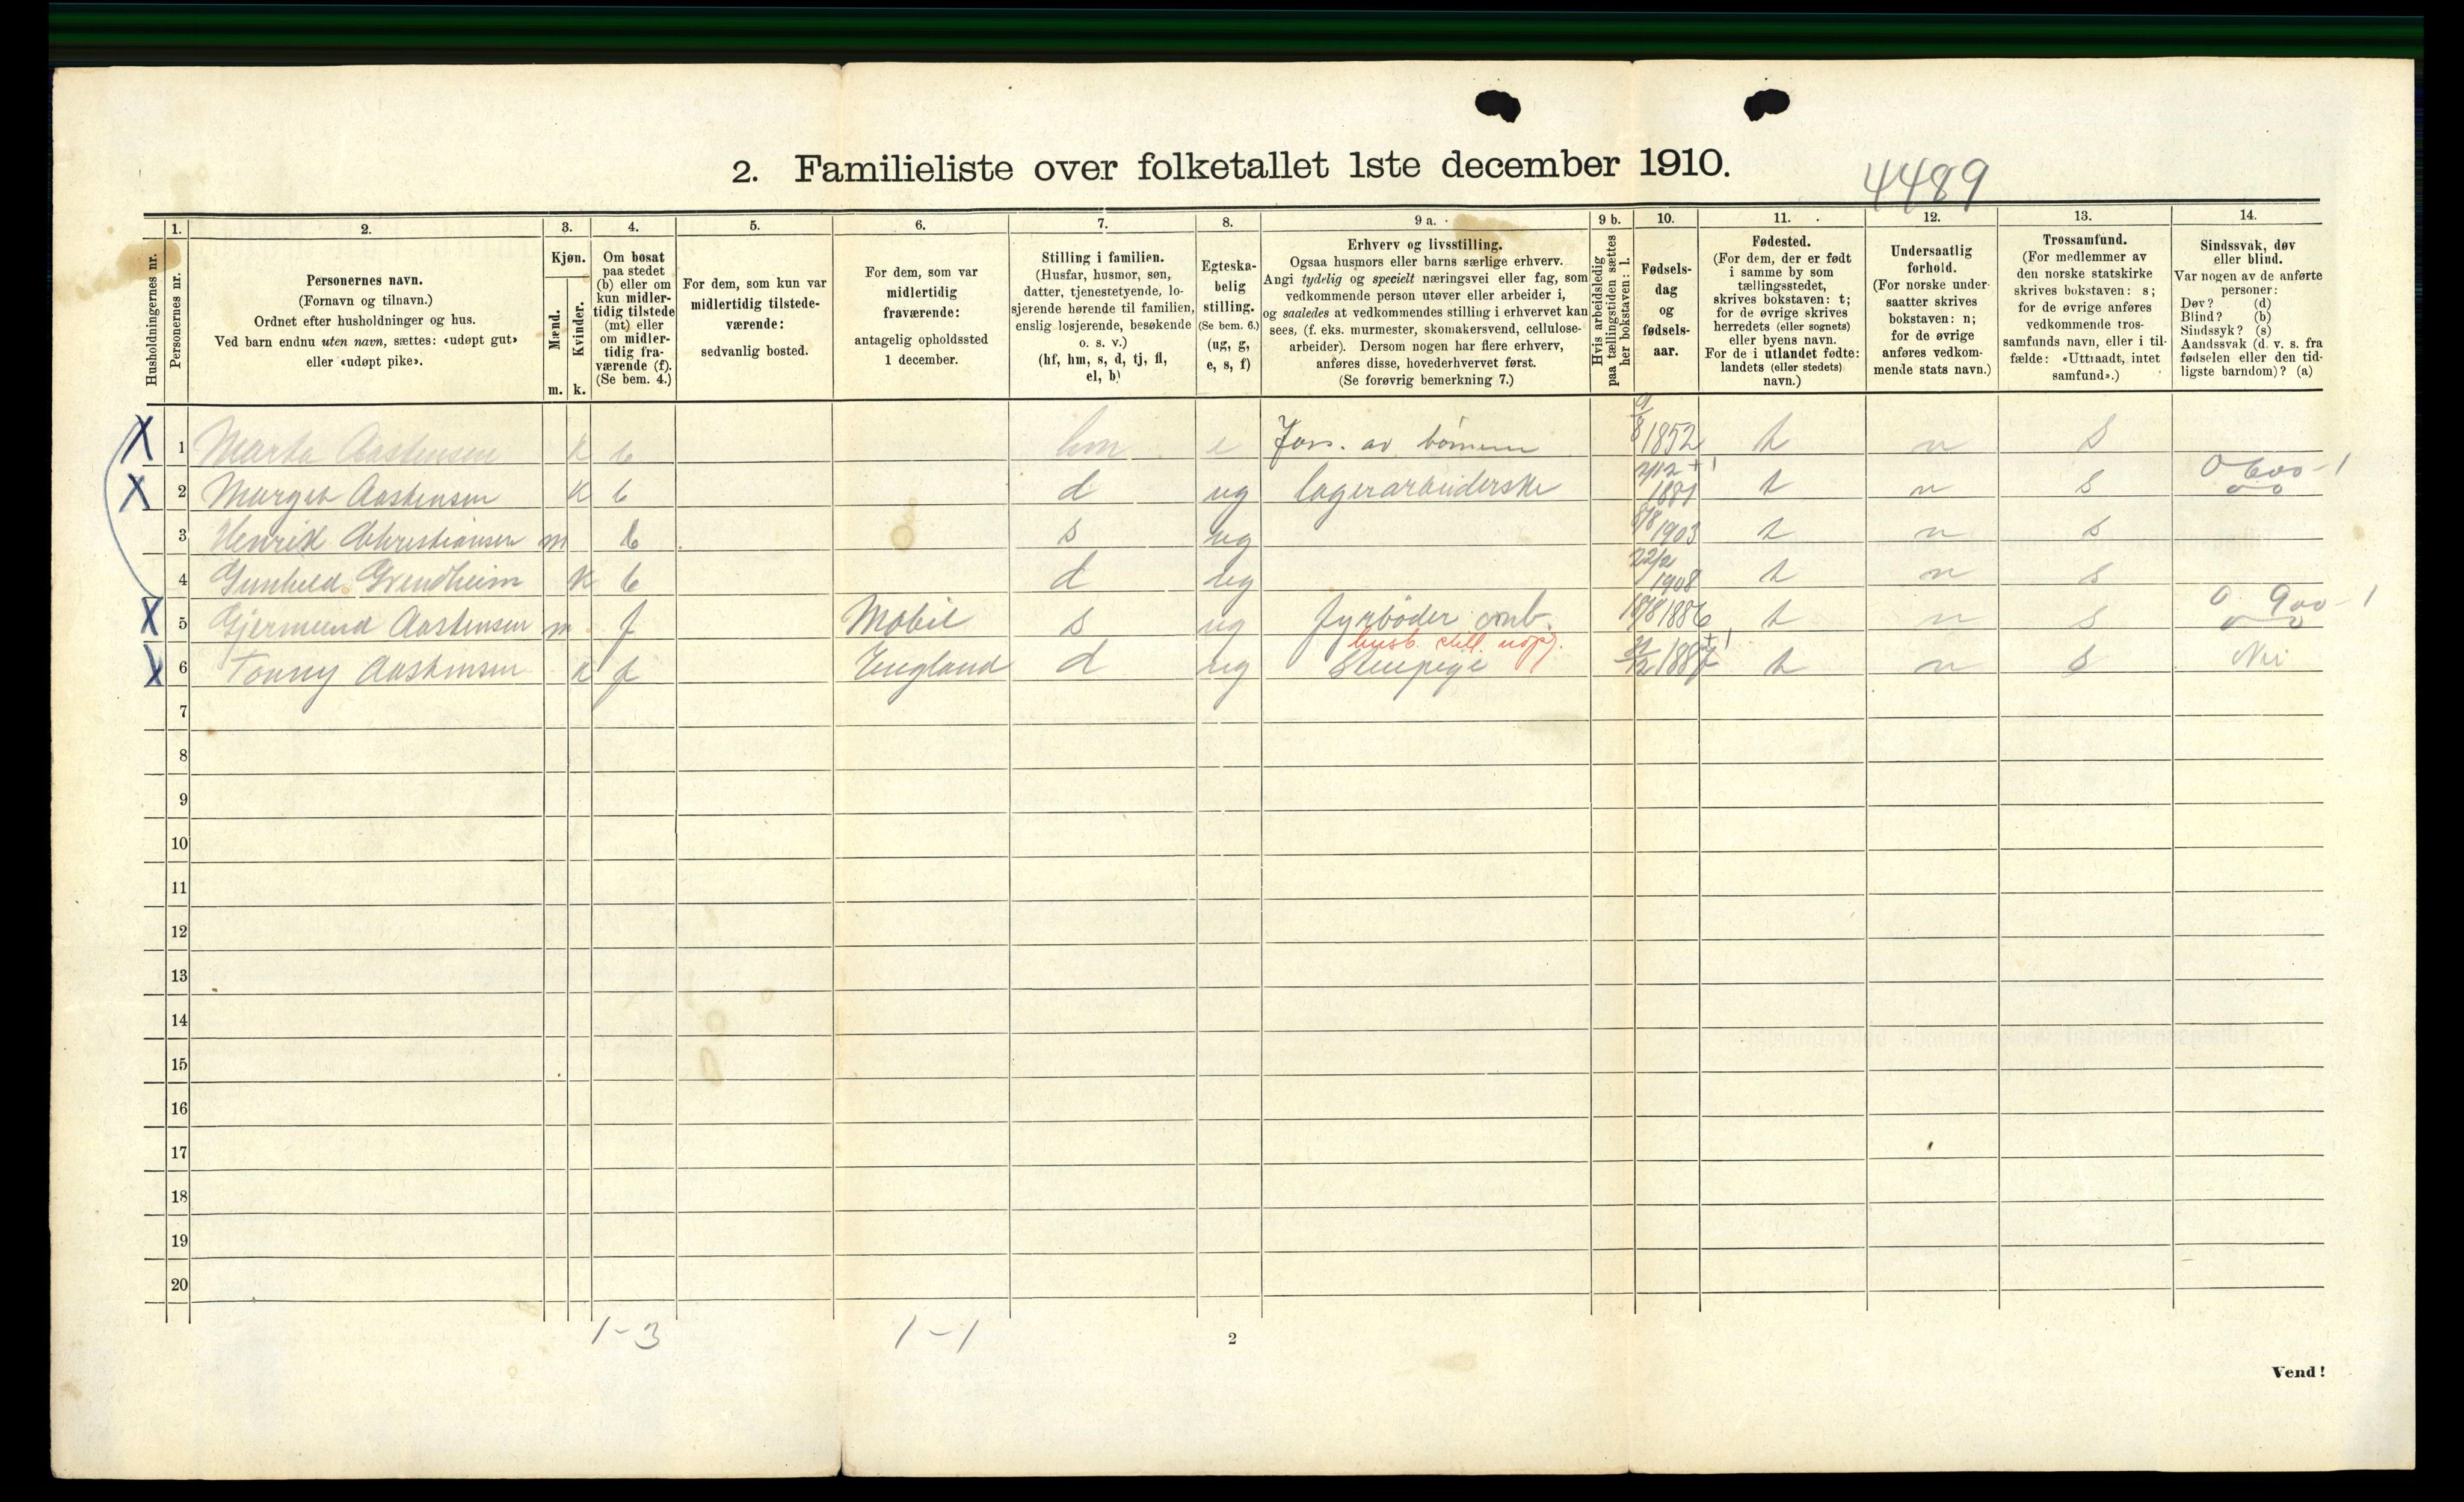 2. Familieliste over folketallet 1ste december 1910.
4489
Husholdningernes nr.
1.
Personernes nr.
2.
Personernes navn.
(Fornavn og tilnavn.)
Ordnet efter husholdninger og hus.
Ved barn endnu uten navn, sættes: «udøpt gut»
eller «udøpt pike».
3.
Kjøn.
Mænd.
Kvinder.
m. k.
4.
Om bosat
paa stedet
(b) eller om
kun midler-
tidig tilstede
(mt) eller
om midler-
tidig fra-
værende (f).
(Se bem. 4.)
5.
For dem, som kun var
midlertidig tilstede-
værende:
sedvanlig bosted.
6.
For dem, som var
midlertidig
fraværende:
antagelig opholdssted
1 december.
7.
Stilling i familien.
(Husfar, husmor, søn,
datter, tjenestetyende, lo-
sjerende hørende til familien,
enslig losjerende, besøkende
o. s. v.)
(hf, hm, s, d, tj, fl,
el, b)
8.
Egteska-
belig
stilling.
(Se bem. 6.)
(ug, g,
e, s, f)
9 a.
Erhverv og livsstilling.
Ogsaa husmors eller barns særlige erhverv.
Angi tydelig og specielt næringsvei eller fag, som
vedkommende person utøver eller arbeider i,
og saaledes at vedkommendes stilling i erhvervet kan
sees, (f. eks. murmester, skomakersvend, cellulose-
arbeider). Dersom nogen har flere erhverv,
anføres disse, hovederhvervet først.
(Se forøvrig bemerkning 7.)
9 b.
Hvis arbeidsledig
paa tællingstiden sættes
her bokstaven: l.
10.
Fødsels-
dag
og
fødsels-
aar.
11.
Fødested.
(For dem, der er født
i samme by som
tællingsstedet,
skrives bokstaven: t;
for de øvrige skrives
herredets (eller sognets)
eller byens navn.
For de i utlandet fødte:
landets (eller stedets)
navn.)
12.
Undersaatlig
forhold.
(For norske under-
saatter skrives
bokstaven: n;
for de øvrige
anføres vedkom-
mende stats navn.)
13.
Trossamfund.
(For medlemmer av
den norske statskirke
skrives bokstaven: s;
for de øvrige anføres
vedkommende tros-
samfunds navn, eller i til-
fælde: «Uttraadt, intet
samfund».)
14.
Sindssvak, døv
eller blind.
Var nogen av de anførte
personer:
Døv? (d)
Blind? (b)
Sindssyk? (s)
Aandssvak (d. v. s. fra
fødselen eller den tid-
ligste barndom)? (a)
X 1 Marta Aastensen k b hm e Fors. av børnene 9/8 1852 t n s
X 2 Marget Aastensen k b d ug lagerarbeiderske 2/12 1881 t n s 0 600 - 1
3 Henrik Christiansen m b s ug 8/8 1903 t n s
4 Gunhild Grendheim k b d ug 22/2 1908 t n s
X 5 Gjermund Aastensen m f Mobil s ug fyrbøder omb. 18/8 1886 t n s 0 900 - 1
husb. still. uopg.
X 6 Tonny Aastensen k f England d ug Stuepige 1887 t n s Nei
7
8
9
10
11
12
13
14
15
16
17
18
19
20
1-3 1-1
2
Vend!